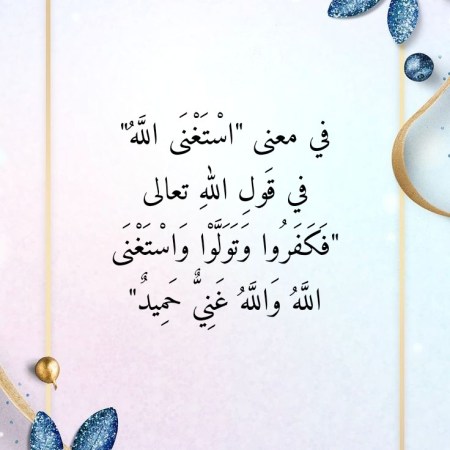 في معنى "اسْتَغْنَى اللَّهُ"
في قَولِ اللهِ تعالى
"فَكَفَرُوا وَتَوَلَّوْا وَاسْتَغْنَى
اللَّهُ وَاللَّهُ غَنِيٌّ حَمِيدٌ"